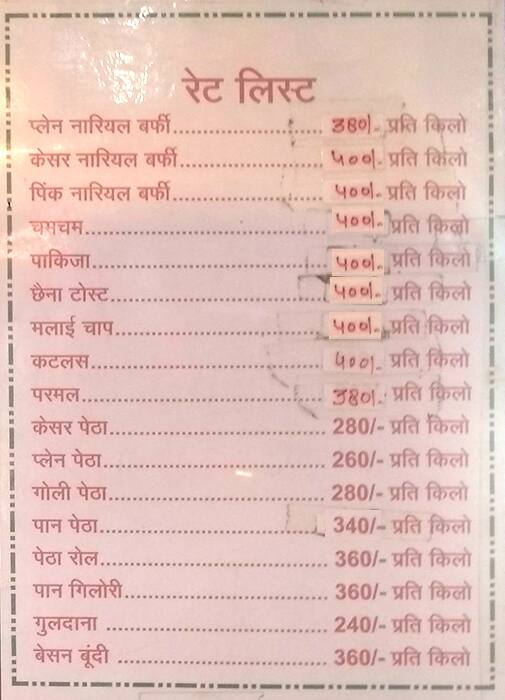 रेट लिस्ट
प्लेन नारियल बर्फी........................ 380/- प्रति किलो
केसर नारियल बर्फी....................... ५००/- प्रति किलो
पिंक नारियल बर्फी........................ ५००/- प्रति किलो
चमचम........................................ ५००/- प्रति किलो
पाकिजा....................................... ५००/- प्रति किलो
छैना टोस्ट.................................... ५००/- प्रति किलो
मलाई चाप................................... ५००/- प्रति किलो
कटलस....................................... ५००/- प्रति किलो
परमल......................................... 380/- प्रति किलो
केसर पेठा.................................... 280/- प्रति किलो
प्लेन पेठा..................................... 260/- प्रति किलो
गोली पेठा.................................... 280/- प्रति किलो
पान पेठा..................................... 340/- प्रति किलो
पेठा रोल...................................... 360/- प्रति किलो
पान गिलोरी.................................. 360/- प्रति किलो
गुलदाना ..................................... 240/- प्रति किलो
बेसन बूंदी ................................... 360/- प्रति किलो